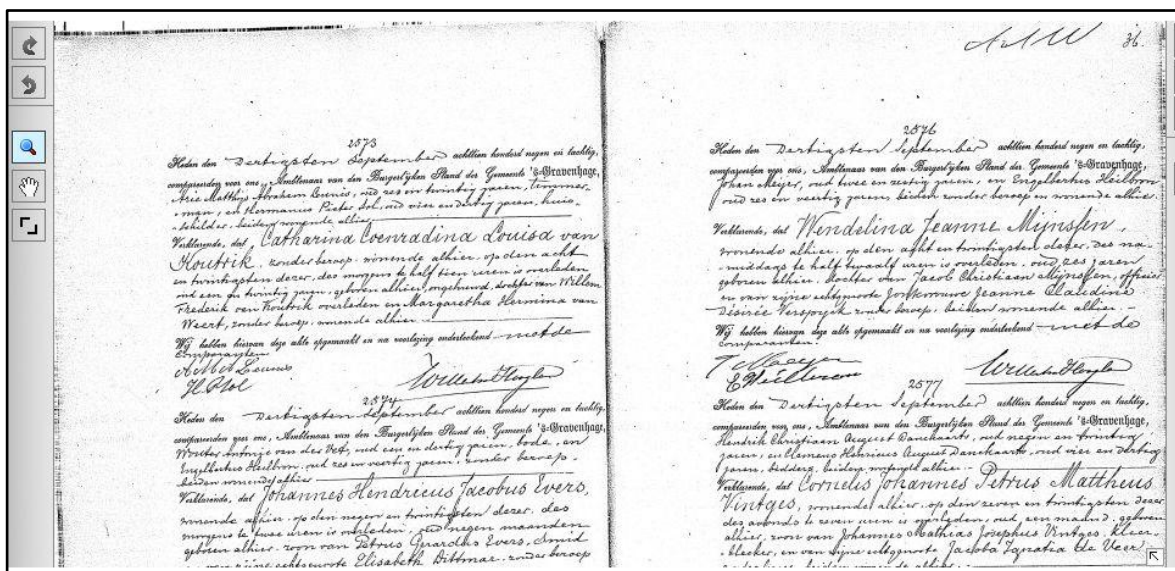 2573
Heden den Dertigsten September achttien honderd negen en tachtig,
compareerden voor ons, Ambtenaar van den Burgerlijken Stand der Gemeente 's-Gravenhage,
Arie Matthijs Abraham Leunis, oud zes en twintig jaren, timmer-
man, en Hermanus Pieter Sol, oud vier en dertig jaren, huis-
schilder, beiden wonende alhier
Verklarende, dat Catharina Coenradina Louisa van
Koutrik, zonder beroep, wonende alhier, op den acht
en twintigsten dezer, des morgens te half tien uren is overleden
oud een en twintig jaren, geboren alhier, ongehuwd, dochter van Willem
Frederik van Koutrik overleden en Margaretha Hermina van
Weert, zonder beroep, wonende alhier.
Wij hebben hiervan deze akte opgemaakt en na voorlezing onderteekend met de
comparanten.
AMA Leunis
H P Sol
2574
Heden den Dertigsten September achttien honderd negen en tachtig,
compareerden voor ons, Ambtenaar van den Burgerlijken Stand der Gemeente 's-Gravenhage,
Wouter van der oud een en dertig jaren, bode, en
Engelbertus Heilbron, oud zes en veertig jaren, zonder beroep,
beiden wonende alhier
Verklarende, dat Johannes Hendricus Jacobus Evers,
wonende alhier, op den negen en twintigsten dezer, des
morgens te twee uren is overleden, oud negen maanden
geboren alhier, zoon van Petrus Gerardus Evers, smid
en van zijne echtgenoote Elisabeth Dittmar, zonder beroep
36.
2576
Heden den Dertigsten September achttien honderd negen en tachtig,
compareerden voor ons, Ambtenaar van den Burgerlijken Stand der Gemeente 's-Gravenhage,
Johan Meyer, oud twee en zestig jaren, en Engelbertus Heilbron
oud zes en veertig jaren, beiden zonder beroep en wonende alhier.
Verklarende, dat Wendelina Jeanne Mijnssen,
wonende alhier, op den acht en twintigsten dezer, des na-
middags te half twaalf uren is overleden, oud zes jaren
geboren alhier, dochter van Jacob Christiaan Mijnssen, officier
en van zijne echtgenoote Jonkvrouwe Jeanne Claudine
Désirée Verspyck zonder beroep, beiden wonende alhier.
Wij hebben hiervan deze akte opgemaakt en na voorlezing onderteekend met de
comparanten.
Meyer
2577
Heden den Dertigsten September achttien honderd negen en tachtig,
compareerden voor ons, Ambtenaar van den Burgerlijken Stand der Gemeente 's-Gravenhage,
Hendrik Christiaan August Danckaarts, oud negen en twintig
jaren, en Clemens Henricus August Danckaarts, oud vier en dertig
jaren, beiden wonende alhier.
Verklarende, dat Cornelis Johannes Petrus Mattheus
Vintges, wonende alhier, op den zeven en twintigsten dezer
des avonds te zeven uren is overleden, oud een maand, geboren
alhier, zoon van Johannes Mathias Josephus Vintges, kleer-
bleeker, en van zijne echtgenoote Jacoba Ignatia de Veer